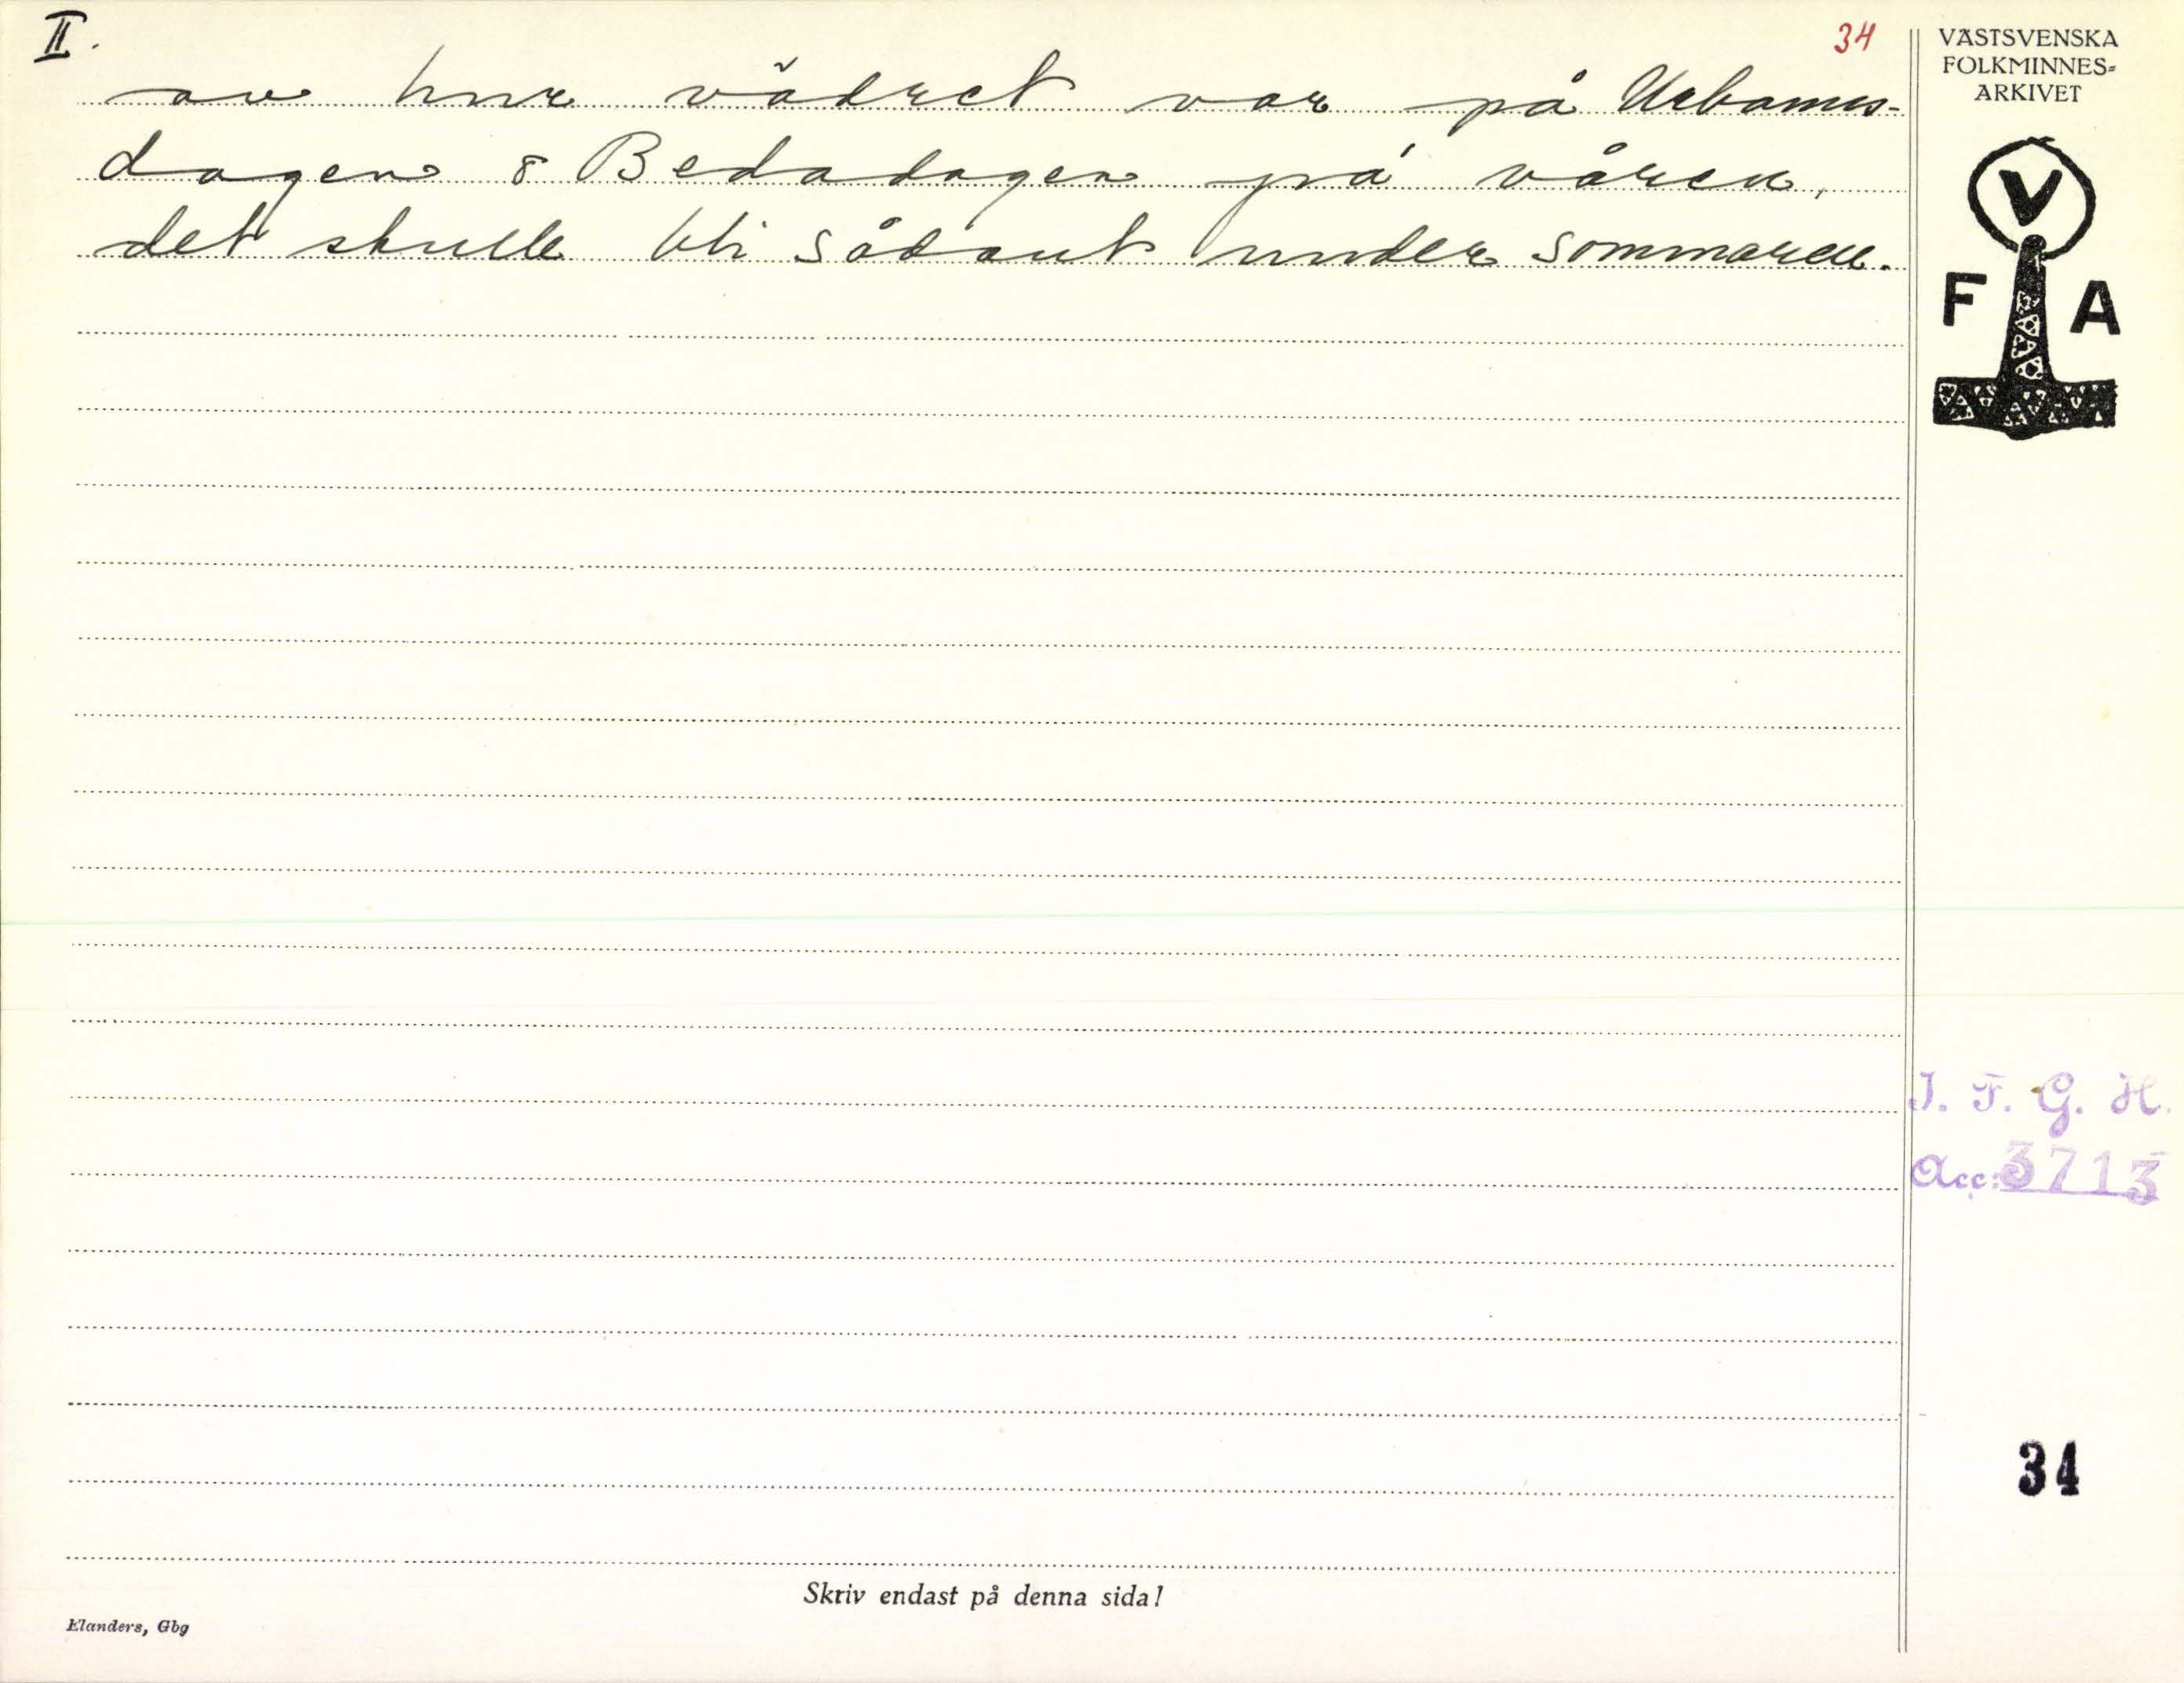 II.
34
av hur vädret var på Urbanus-
dagen & Bedadagen på våren,
det skulle bli sådant under sommaren.
VÄSTSVENSKA
FOLKMINNES=
ARKIVET
V
F A
I. F. G. H.
Acc: 3713
34
Skriv endast på denna sida!
Elanders, Gbg